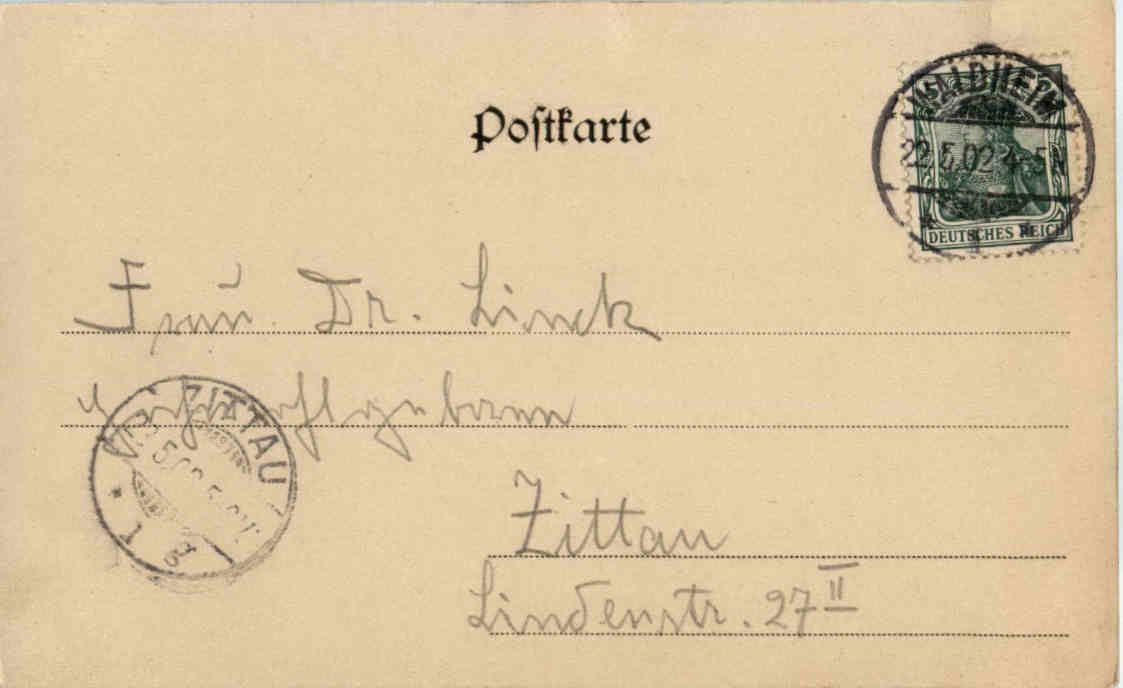 Postkarte
WALDHEIM
22.5.02.4-5N
DEUTSCHES REICH
Frau Dr. Linck
Hochwohlgeboren
ZITTAU
1
Zittau
Lindenstr. 27 II